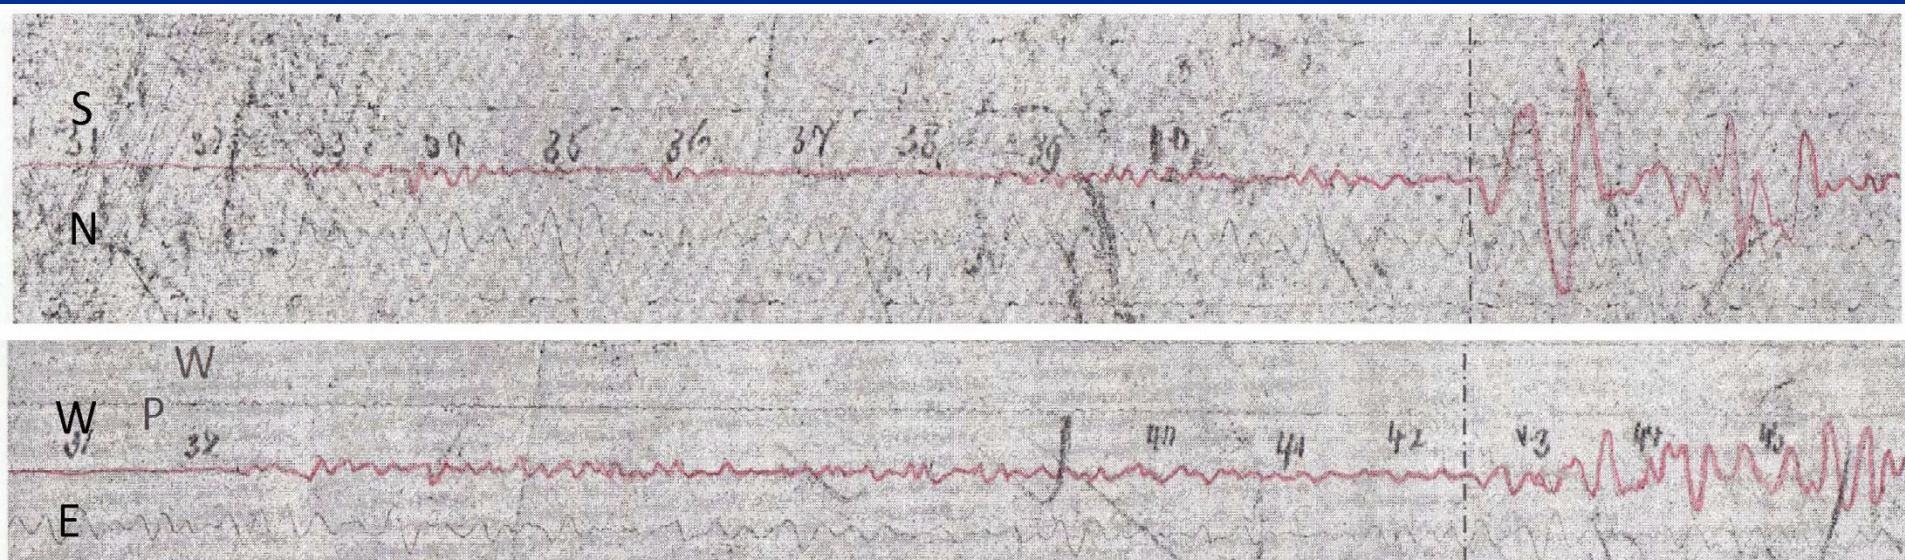 S
31 32 33 34 35 36 37 38 39 40
N
W
W P
31 32 40 41 42 43 44 45
E